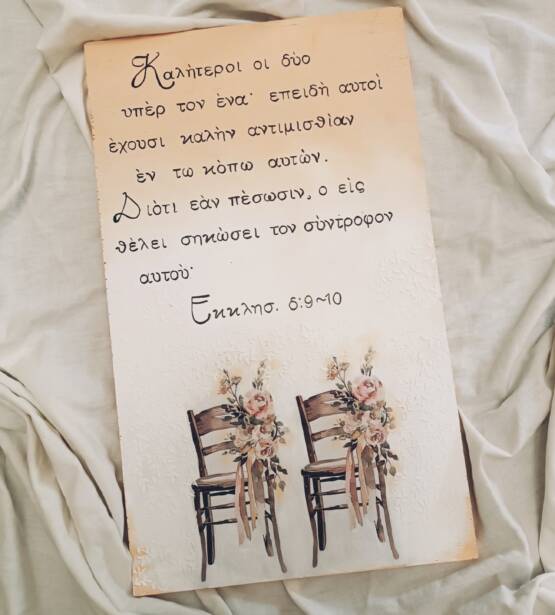 Καλήτεροι οι δύο
υπέρ τον ένα· επειδή αυτοί
έχουσι καλήν αντιμισθίαν
έν τω κόπω αυτών.
Διότι εάν πέσωσιν, ο είς
θέλει σηκώσει τον σύντροφον
αυτού·
Εκκλησ. δ:9~10